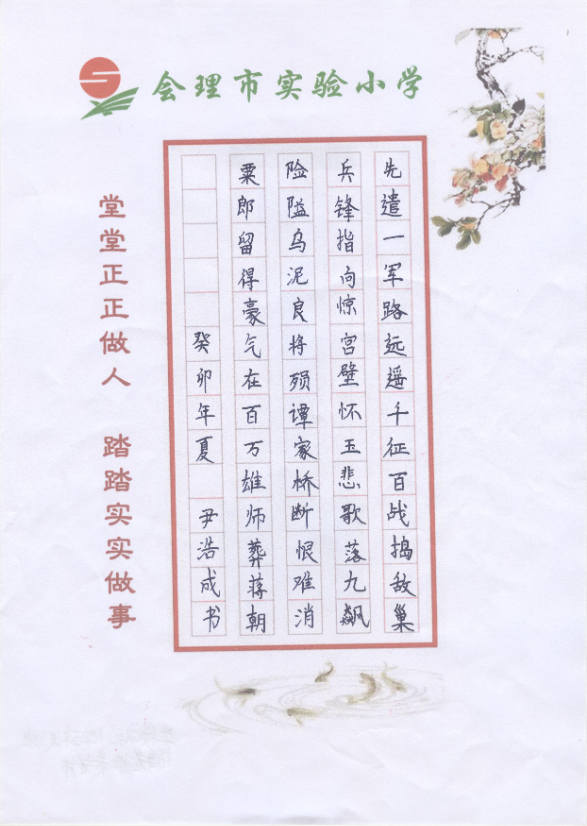 会理市实验小学
先遣一军路远遥千征百战捣敌巢
兵锋指向惊宫壁怀玉悲歌落九飙
险隘乌泥良将殒谭家桥断恨难消
粟郎留得豪气在百万雄师葬蒋朝
癸卯年夏 尹浩成书
堂堂正正做人 踏踏实实做事